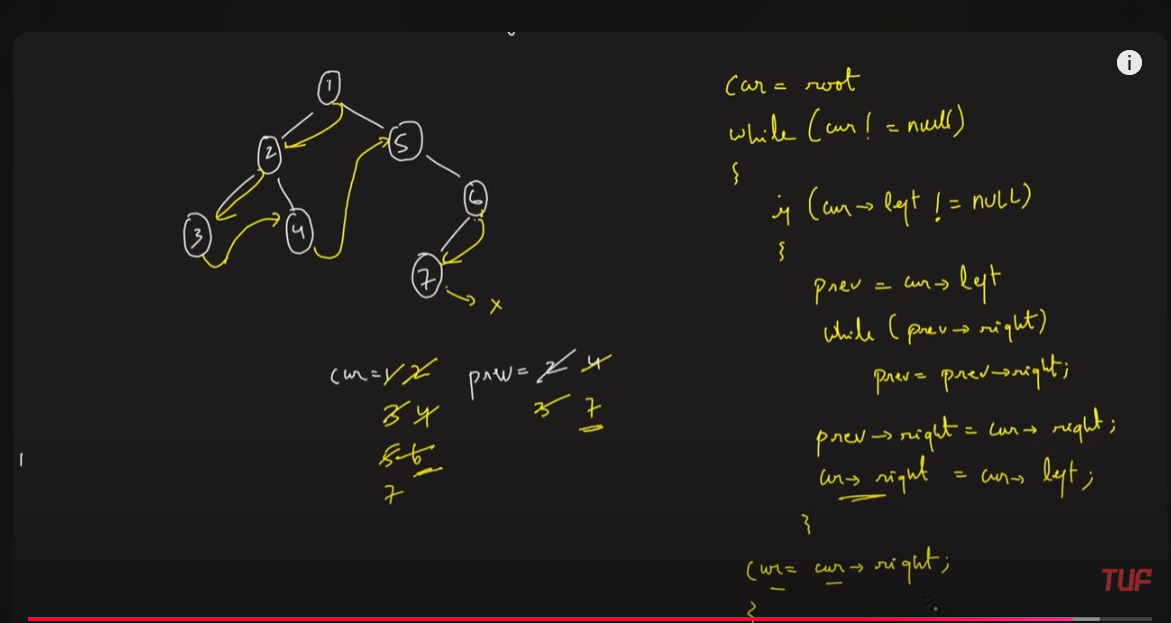 1
2
5
3
4
6
7
x
cur = 1 2
3 4
5 6
7
prev = 2 4
3 7
cur = root
while (cur != null)
{
if (cur → left != NULL)
{
prev = cur → left
while (prev → right)
prev = prev → right;
prev → right = cur → right;
cur → right = cur → left;
}
cur = cur → right;
}
i
TUF